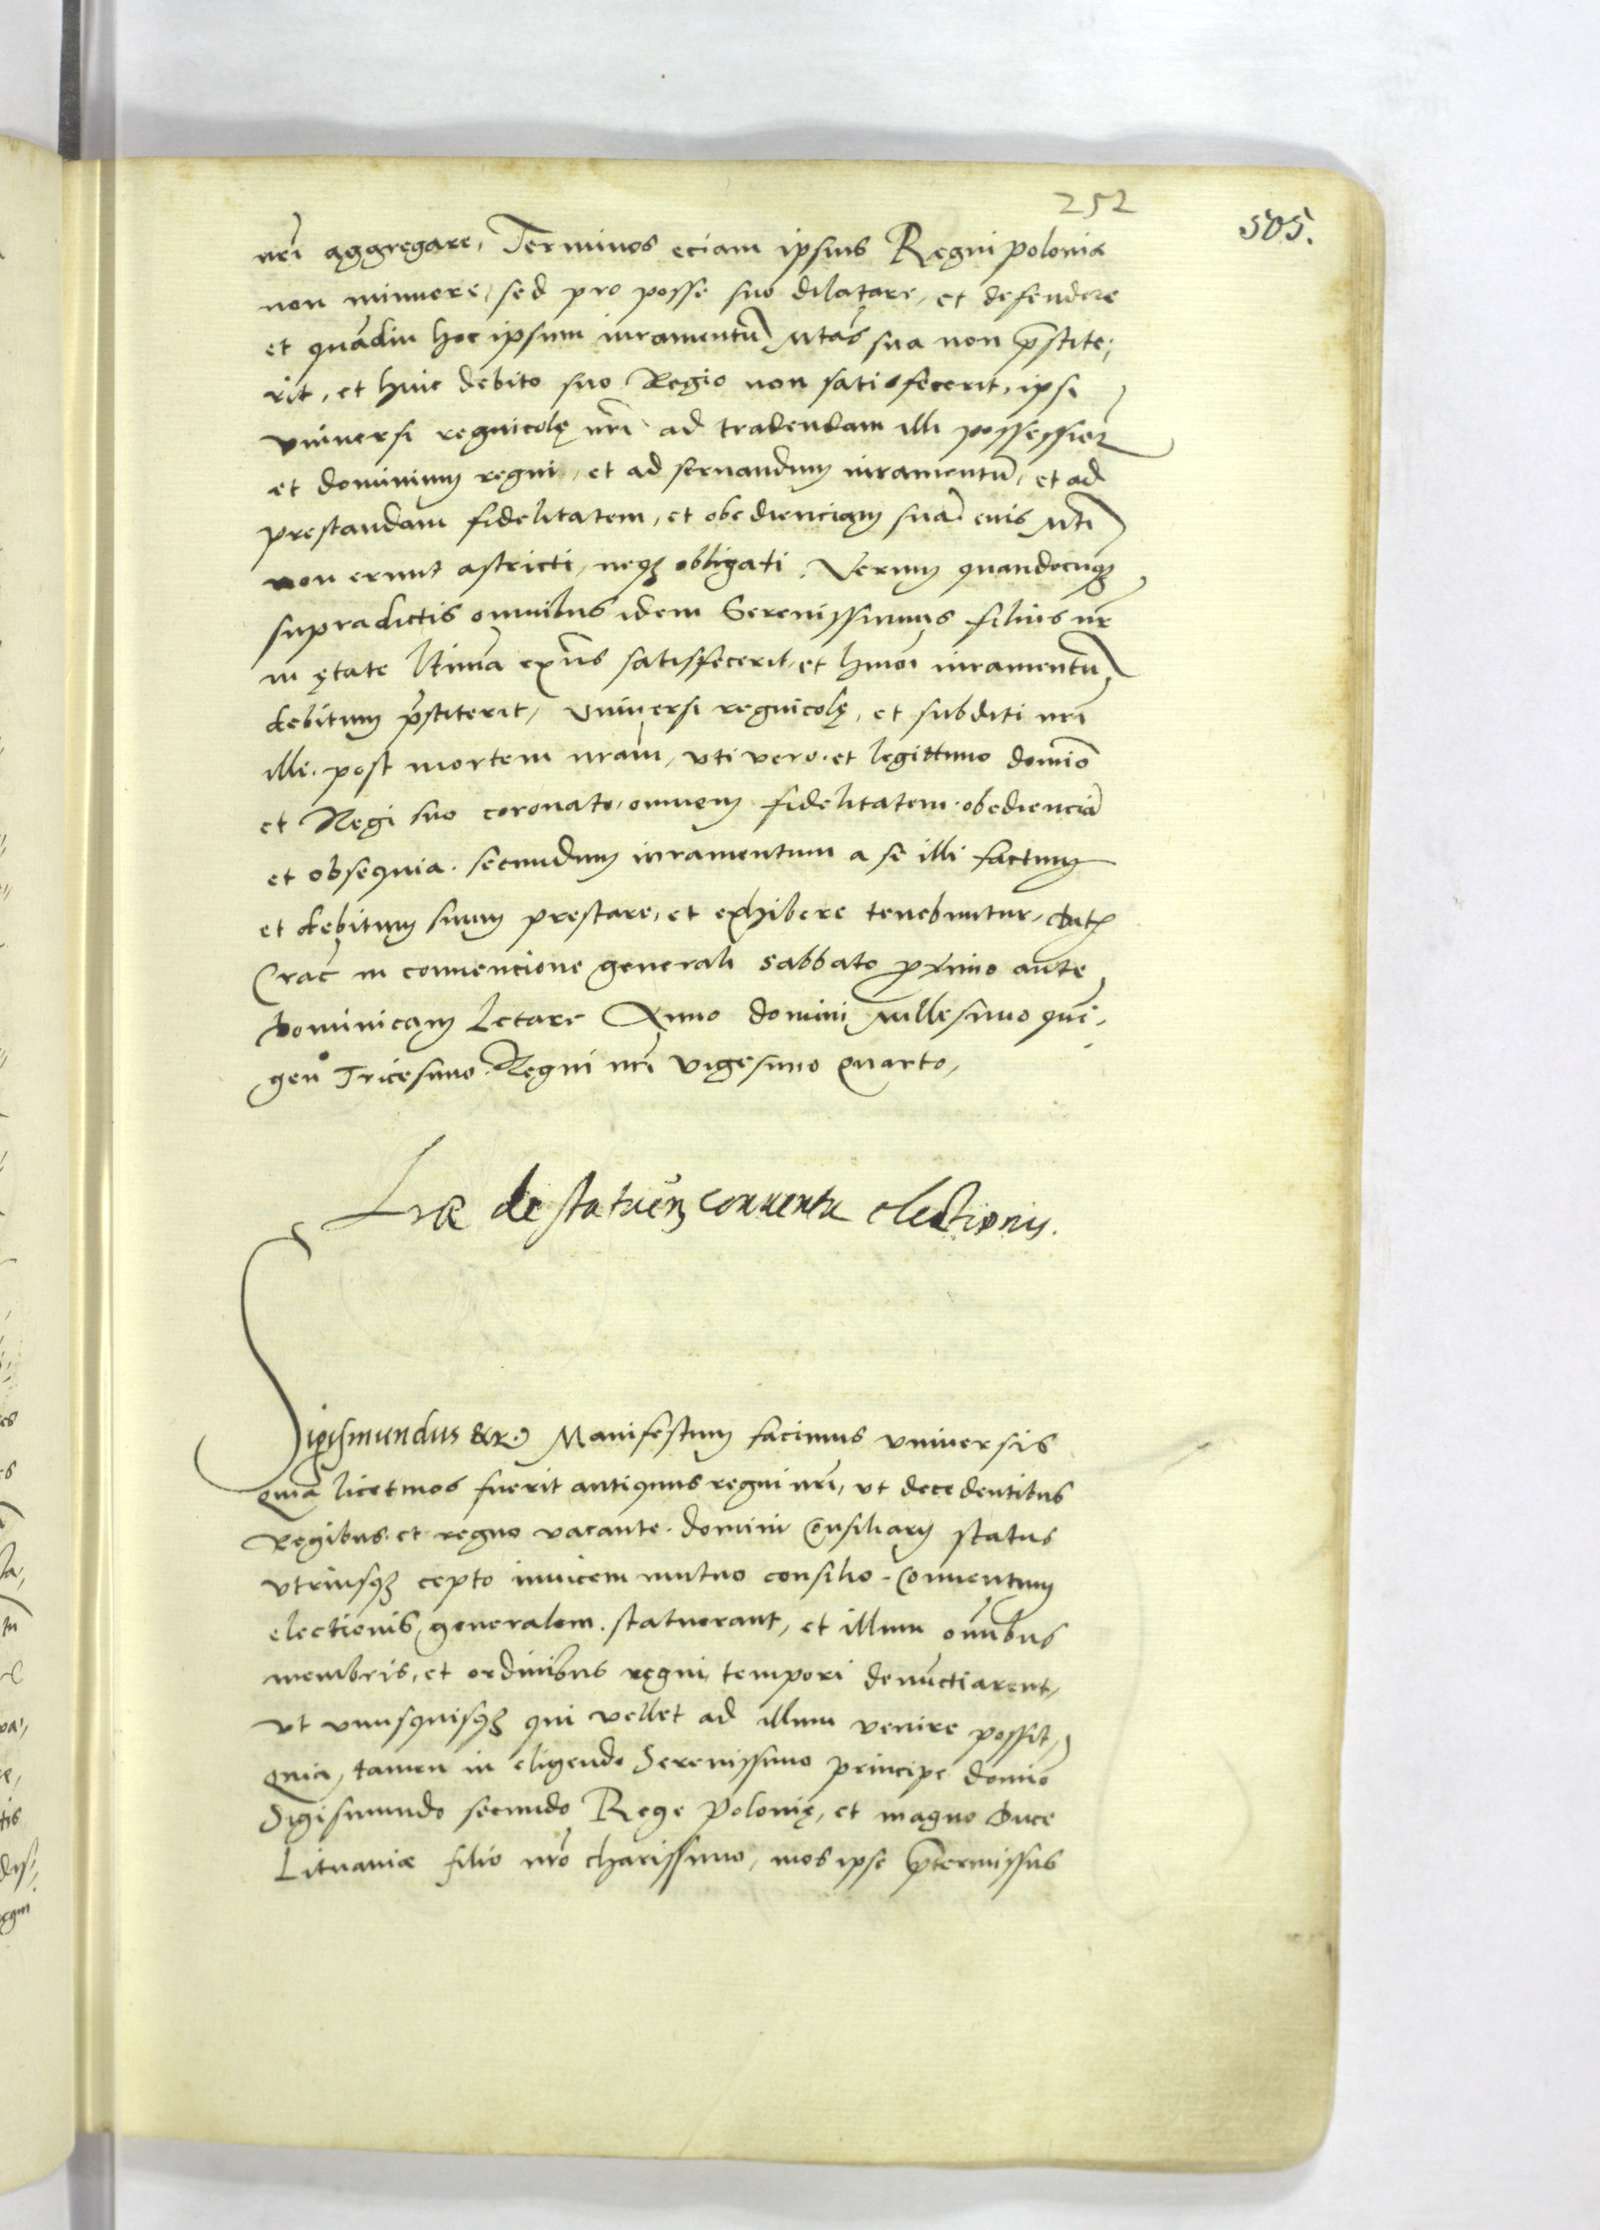 252
505.
nr̃i aggregare, Terminos eciam ipsius Regni poloniæ
non minuere, sed pro posse suo dilatare, et defendere
et quãdiu hoc ipsum iuramentũ Mtas sua non p̃stite,
rit, et huic debito suo Regio non satisfecerit, ipsi
vniuersi regnicolę nr̃i ad tradendam illi possession̄
et dominium regni, et ad seruandum iuramentũ, et ad
prestandam fidelitatem, et obedienciam suã eius Mti
non erunt astricti, neqз obligati. Verum quandocunqз
supradictis omnibus idem Serenissimus filius nr̃
in ętate l̃tima ex̃ns satisfecerit, et hmõi iuramentũ
debitum p̃stiterit, vniuersi regnicolę, et subditi nr̃i
illi post mortem nr̃am, vti vero et legittimo domĩo
et Regi suo coronato, omnem fidelitatem obedienciã
et obsequia secundum iuramentum a se illi factum
et debitum suum prestare, et exhibere tenebuntur, Dat̃
Crac̃ in conuencione generali sabbato proximo ante
Dominicam Letare Anno domini Millesimo quin,
gen° Tricesimo. Regni nr̃i vigesimo quarto,
Lr̃æ de statuen̄ conuentu electionis.
Sigismundus &c. Manifestum facimus vniuersis
Quia licet mos fuerit antiquus regni nr̃i, vt decedentibus
Regibus et regno vacante domini Consiliarij status
vtriusqз cepto inuicem mutuo consilio Conuentum
electionis generalem statuerant, et illum om̃ibus
membris, et ordinibus regni tempori denunctiarent,
vt vnusquisqз qui vellet ad illum venire possit,
Quia tamen in eligendo Serenissimo principe domĩo
Sigismundo secundo Rege Polonię, et magno Duce
Lituaniæ filio nr̃o charissimo, mos ipse p̃termissus